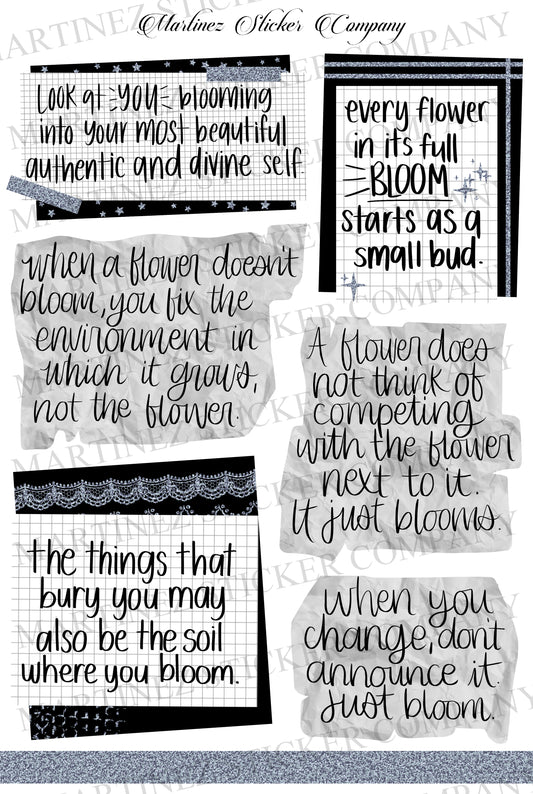 Martinez Sticker Company
Look at YOU blooming
into your most beautiful
authentic and divine self.
every flower
in its full
BLOOM
starts as a
small bud.
when a flower doesn't
bloom, you fix the
environment in
which it grows,
not the flower.
A flower does
not think of
competing
with the flower
next to it.
It just blooms.
the things that
bury you may
also be the soil
where you bloom.
when you
change, don't
announce it.
Just bloom.
MARTINEZ STICKER COMPANY